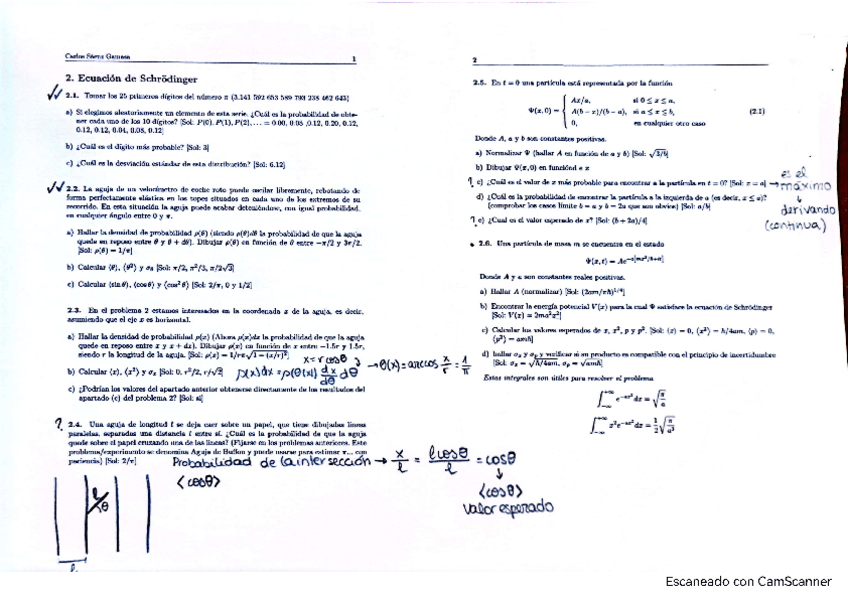 Carlos Sáenz Gamasa 1
2. Ecuación de Schrödinger
2.1. Tomar los 25 primeros dígitos del número π (3.141 592 653 589 793 238 462 643)
a) Si elegimos aleatoriamente un elemento de esta serie. ¿Cuál es la probabilidad de obte-
ner cada uno de los 10 dígitos? [Sol: P(0), P(1), P(2),... = 0.00, 0.08, 0.12, 0.20, 0.12,
0.12, 0.12, 0.04, 0.08, 0.12]
b) ¿Cuál es el dígito más probable? [Sol: 3]
c) ¿Cuál es la desviación estándar de esta distribución? [Sol: 6.12]
2.2. La aguja de un velocímetro de coche roto puede oscilar libremente, rebotando de
forma perfectamente elástica en los topes situados en cada uno de los extremos de su
recorrido. En esta situación la aguja puede acabar deteniéndose, con igual probabilidad,
en cualquier ángulo entre 0 y π.
a) Hallar la densidad de probabilidad ρ(θ) (siendo ρ(θ)dθ la probabilidad de que la aguja
quede en reposo entre θ y θ + dθ). Dibujar ρ(θ) en función de θ entre −π/2 y 3π/2.
[Sol: ρ(θ) = 1/π]
b) Calcular ⟨θ⟩, ⟨θ²⟩ y σθ [Sol: π/2, π²/3, π/2√3]
c) Calcular ⟨sin θ⟩, ⟨cos θ⟩ y ⟨cos² θ⟩ [Sol: 2/π, 0 y 1/2]
2.3. En el problema 2 estamos interesados en la coordenada x de la aguja, es decir,
asumiendo que el eje x es horizontal.
a) Hallar la densidad de probabilidad ρ(x) (Ahora ρ(x)dx la probabilidad de que la aguja
quede en reposo entre x y x + dx). Dibujar ρ(x) en función de x entre −1.5r y 1.5r,
siendo r la longitud de la aguja. [Sol: ρ(x) = 1/πr√1 − (x/r)²]
x = r cosθ
b) Calcular ⟨x⟩, ⟨x²⟩ y σx [Sol: 0, r²/2, r/√2]
ρ(x)dx = ρ(θ(x)) dx/dθ dθ → θ(x) = arccos x/r = 1/π
c) ¿Podrían los valores del apartado anterior obtenerse directamente de los resultados del
apartado (c) del problema 2? [Sol: sí]
? 2.4. Una aguja de longitud l se deja caer sobre un papel, que tiene dibujadas líneas
paralelas, separadas una distancia l entre sí. ¿Cuál es la probabilidad de que la aguja
quede sobre el papel cruzando una de las líneas? (Fijarse en los problemas anteriores. Este
problema/experimento se denomina Aguja de Buffon y puede usarse para estimar π... con
paciencia) [Sol: 2/π]
Probabilidad de la intersección → x/l = l cosθ/l = cosθ
⟨cosθ⟩
↓
⟨cosθ⟩
valor esperado
l
θ
l
2
2.5. En t = 0 una partícula está representada por la función
Ψ(x, 0) = { Ax/a, si 0 ≤ x ≤ a,
A(b − x)/(b − a), si a ≤ x ≤ b, (2.1)
0, en cualquier otro caso
Donde A, a y b son constantes positivas.
a) Normalizar Ψ (hallar A en función de a y b) [Sol: √3/b]
b) Dibujar Ψ(x, 0) en función de x
? c) ¿Cuál es el valor de x más probable para encontrar a la partícula en t = 0? [Sol: x = a] → es el
máximo
↓
derivando
(continua)
d) ¿Cuál es la probabilidad de encontrar la partícula a la izquierda de a (es decir, x ≤ a)?
(comprobar los casos límite b = a y b = 2a que son obvios) [Sol: a/b]
? e) ¿Cual es el valor esperado de x? [Sol: (b + 2a)/4]
2.6. Una partícula de masa m se encuentra en el estado
Ψ(x, t) = Ae^−a[mx²/ħ+it]
Donde A y a son constantes reales positivas.
a) Hallar A (normalizar) [Sol: (2am/πħ)^1/4]
b) Encontrar la energía potencial V(x) para la cual Ψ satisface la ecuación de Schrödinger
[Sol: V(x) = 2ma²x²]
c) Calcular los valores esperados de x, x², p y p². [Sol: ⟨x⟩ = 0, ⟨x²⟩ = ħ/4am, ⟨p⟩ = 0,
⟨p²⟩ = amħ]
d) hallar σx y σp y verificar si su producto es compatible con el principio de incertidumbre
[Sol: σx = √ħ/4am, σp = √amħ]
Estas integrales son útiles para resolver el problema
∫−∞+∞ e^−ax² dx = √π/a
∫−∞+∞ x²e^−ax² dx = 1/2 √π/a³
Escaneado con CamScanner